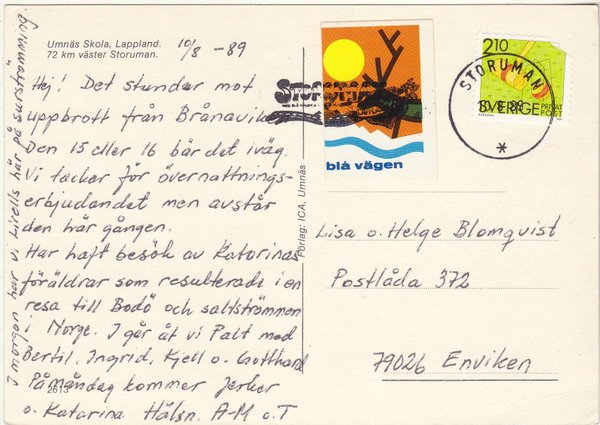 Umnäs Skola, Lappland.
72 km väster Storuman.
10/8 -89
Hej! Det stundar mot
uppbrott från Brånaviken
Den 15 eller 16 bär det iväg.
Vi tackar för övernattnings-
erbjudandet men avstår
den här gången.
Har haft besök av Katarinas
föräldrar som resulterade i en
resa till Bodö och saltströmmen
i Norge. I går åt vi Palt med
Bertil, Ingrid, Kjell o. Gotthard
På måndag kommer Jerker
o. Katarina. Hälsn. A-M o. T
I morgon har vi Lirells här på surströmming.
2613
Förlag: ICA, Umnäs
STORUMAN
blå vägen
2.10
SVERIGE
PRIVAT
POST
STORUMAN
10.8.89
Lisa o. Helge Blomqvist
Postlåda 372
79026 Enviken